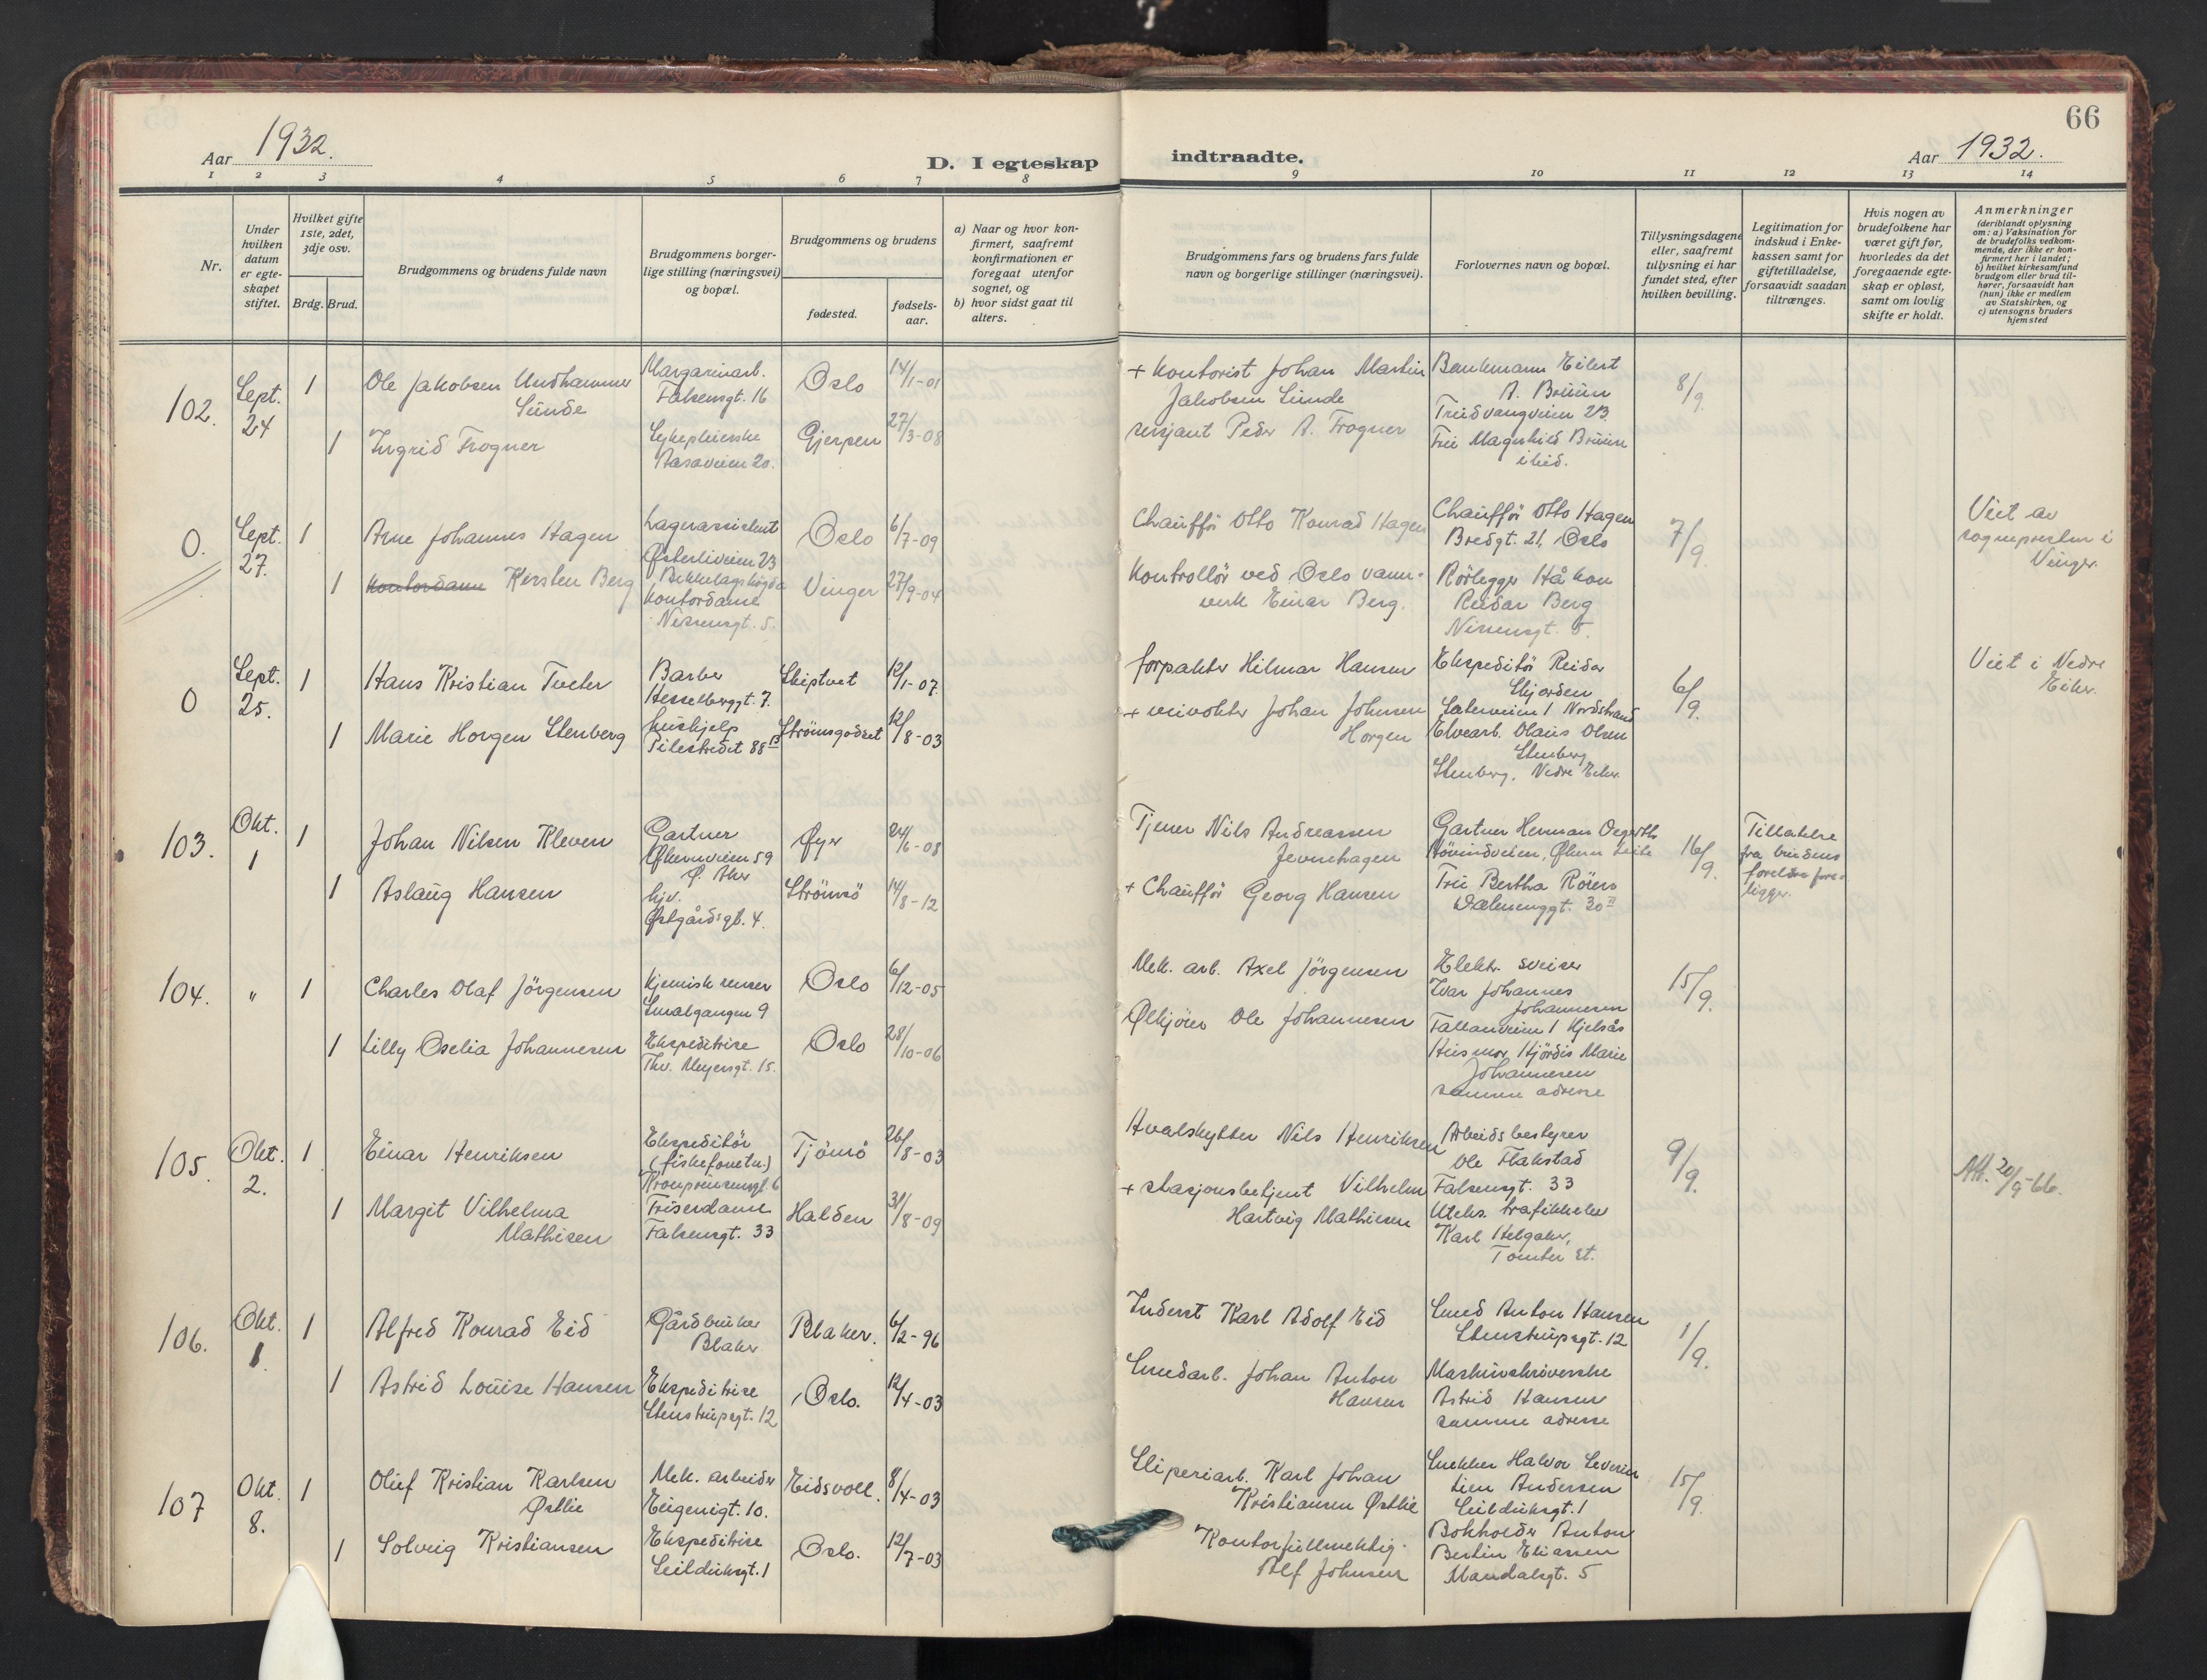 66
Aar 1932.
D. I egteskap indtraadte.
Aar 1932.
1 2 3 4 5 6 7 8 9 10 11 12 13 14
Nr.
Under
hvilken
datum
er egte-
skapet
stiftet.
Hvilket gifte
1ste, 2det,
3dje osv.
Brdg. Brud.
Brudgommens og brudens fulde navn
Brudgommens borger-
lige stilling (næringsvei)
og bopæl.
Brudgommens og brudens
fødested.
fødsels-
aar.
a) Naar og hvor kon-
firmert, saafremt
konfirmationen er
foregaat utenfor
sognet, og
b) hvor sidst gaat til
alters.
Brudgommens fars og brudens fars fulde
navn og borgerlige stillinger (næringsvei).
Forlovernes navn og bopæl.
Tillysningsdagene
eller, saafremt
tillysning ei har
fundet sted, efter
hvilken bevilling.
Legitimation for
indskud i Enke-
kassen samt for
giftetilladelse,
forsaavidt saadan
tiltrænges.
Hvis nogen av
brudefolkene har
været gift før,
hvorledes da det
foregaaende egte-
skap er opløst,
samt om lovlig
skifte er holdt.
Anmerkninger
(deriblandt oplysning
om: a) Vaksination for
de brudefolks vedkom-
mende, der ikke er kon-
firmert her i landet;
b) hvilket kirkesamfund
brudgom eller brud til-
hører, forsaavidt han
(hun) ikke er medlem
av Statskirken, og
c) utensogns bruders
hjemsted
102.
Sept.
24
1
Ole Jakobsen Undhammer
Sunde
Margarinarb.
Falsensgt. 16
Oslo
14/1-01
+ Kontorist Johan Martin
Jakobsen Sunde
Bankmann Eilert
A. Bruun
Trudvangveien 23
8/9.
1
Ingrid Frogner
Sykepleierske
Aasaveien 20.
Gjerpen
27/3-08
sersjant Peder A. Frogner
Fru Magnhild Bruun
ibid.
0.
Sept.
27.
1
Arne Johannes Hagen
Lagerassistent
Østerliveien 23
Bekkelagshøgda
Oslo
6/7-09
Chauffør Otto Konrad Hagen
Chauffør Otto Hagen
Bredgt. 21, Oslo
7/9.
Viet av
sognepresten i
Vinger.
1
Kontordame Kirsten Berg
kontordame
Nissensgt. 5.
Vinger
27/9-04
Kontrollør ved Oslo vann-
verk Einar Berg.
Rørlegger Håkon
Reidar Berg
Nissensgt. 5.
0
Sept.
25.
1
Hans Kristian Tveter
Barber
Hesselberggt. 7.
Skiptvet
12/1-07.
forpakter Hilmar Hansen
Ekspeditør Reidar
Skjorden
Sæterveien 1 Nordstrand
6/9.
Viet i Nedre
Eiker.
1
Marie Horgen Stenberg
hushjelp
Pilestredet 88 B
Strømsgodset
12/8-03
+ veivokter Johan Johnsen
Horgen
Elvearb. Olaus Olsen
Stenberg
Stenberg, Nedre Eiker.
103.
Okt.
1
1
Johan Nilsen Kleven
Gartner
Økernveien 59
Ø. Aker
Øyer
24/6-08
Tjener Nils Andreassen
Jevnehagen
Gartner Herman
16/9.
Tillatelse
fra brudens
foreldre fore-
ligger.
1
Aslaug Hansen
hjv.
Østgårdsgt. 4.
Strømsø
14/8-12
+ Chauffør Georg Hansen
Fru Bertha Roiem
Wæleenggt. 30 II
104.
"
1
Charles Olaf Jörgensen
Kjemisk renser
Smalgangen 9
Oslo
6/12-05
Mek. arb. Axel Jörgensen
Elektr. sveiser
Ivar Johannes
Johannesen
Fallanveien 1 Kjelsås
15/9.
1
Lilly Oselia Johannesen
Ekspeditrise
Thv. Meyersgt. 15.
Oslo
28/10-06
Ølkjører Ole Johannesen
Husmor Hjördis Marie
Johannesen
samme adresse
105.
Okt.
2.
1
Einar Henriksen
Ekspeditör
Kronprinsensgt. 6
Tjömö
26/8-03
Hvalskytter Nils Henriksen
Arbeidsbestyrer
Ole Flakstad
Falsensgt. 33
9/9.
Att. 20/9-66.
1
Margit Vilhelma
Mathisen
Friserdame
Falsensgt. 33
Halden
31/8-09
+ stasjonsbetjent Vilhelm
Hartvig Mathisen
Uteks. trafikkelev
Karl Helgaker,
Tomter st.
106.
Okt.
1.
1
Alfred Konrad Eid
Gårdbruker
Blaker
Blaker.
6/2-96
Inderst Karl Adolf Eid
Smed Anton Hansen
Stenstrupsgt. 12
1/9.
1
Astrid Louise Hansen
Ekspeditrise
Stenstrupsgt. 12
Oslo.
12/4-03
Smedarb. Johan Anton
Hansen
Maskinskriverske
Astrid Hansen
samme adresse
107
Okt.
8.
1
Oluf Kristian Karlsen
Østlie
Mek. arbeider
Eugenigt. 10.
Eidsvoll.
8/4-03
Sliperiarb. Karl Johan
Kristiansen Østlie
Snekker Halvor Severin
Lien Andersen
Seilduksgt. 1
15/9.
1
Solveig Kristiansen
Ekspeditrise
Seilduksgt. 1
Oslo.
12/7-03
Kontorfullmektig
Alf Johnsen
Bokholder Anton
Bertin Eliassen
Mandalsgt. 5